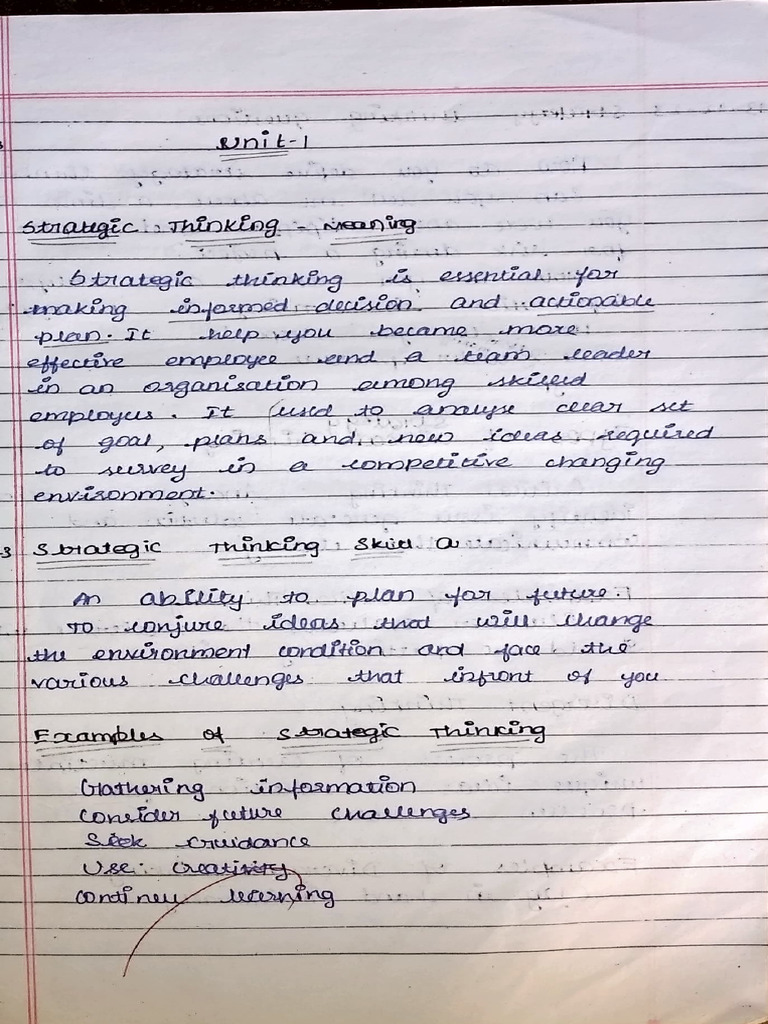 Unit-1
Strategic Thinking - Meaning
Strategic thinking is essential for
making informed decision and actionable
plan. It help you became more
effective employee and a team leader
in an organisation among skilled
employees. It used to analyse clear set
of goal, plans and new ideas required
to survey in a competitive changing
environment.
Strategic Thinking Skill
An ability to plan for future.
To conjure ideas that will change
the environment condition and face the
various challenges that infront of you
Examples of Strategic Thinking
Gathering information
Consider future challenges
Seek Gruidance
Use creativity
Contineu learning